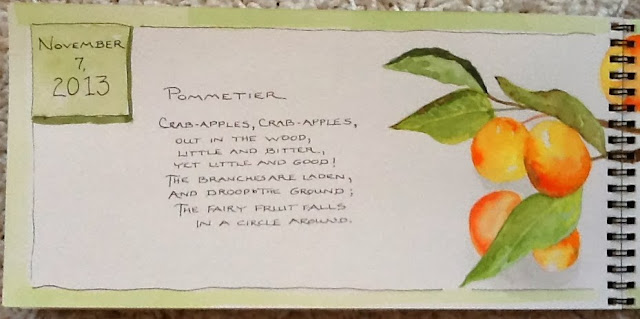 November
7,
2013
Pommetier
Crab-apples, crab-apples,
out in the wood,
little and bitter,
yet little and good!
The branches are laden,
and droop to the ground;
The fairy fruit falls
in a circle around.